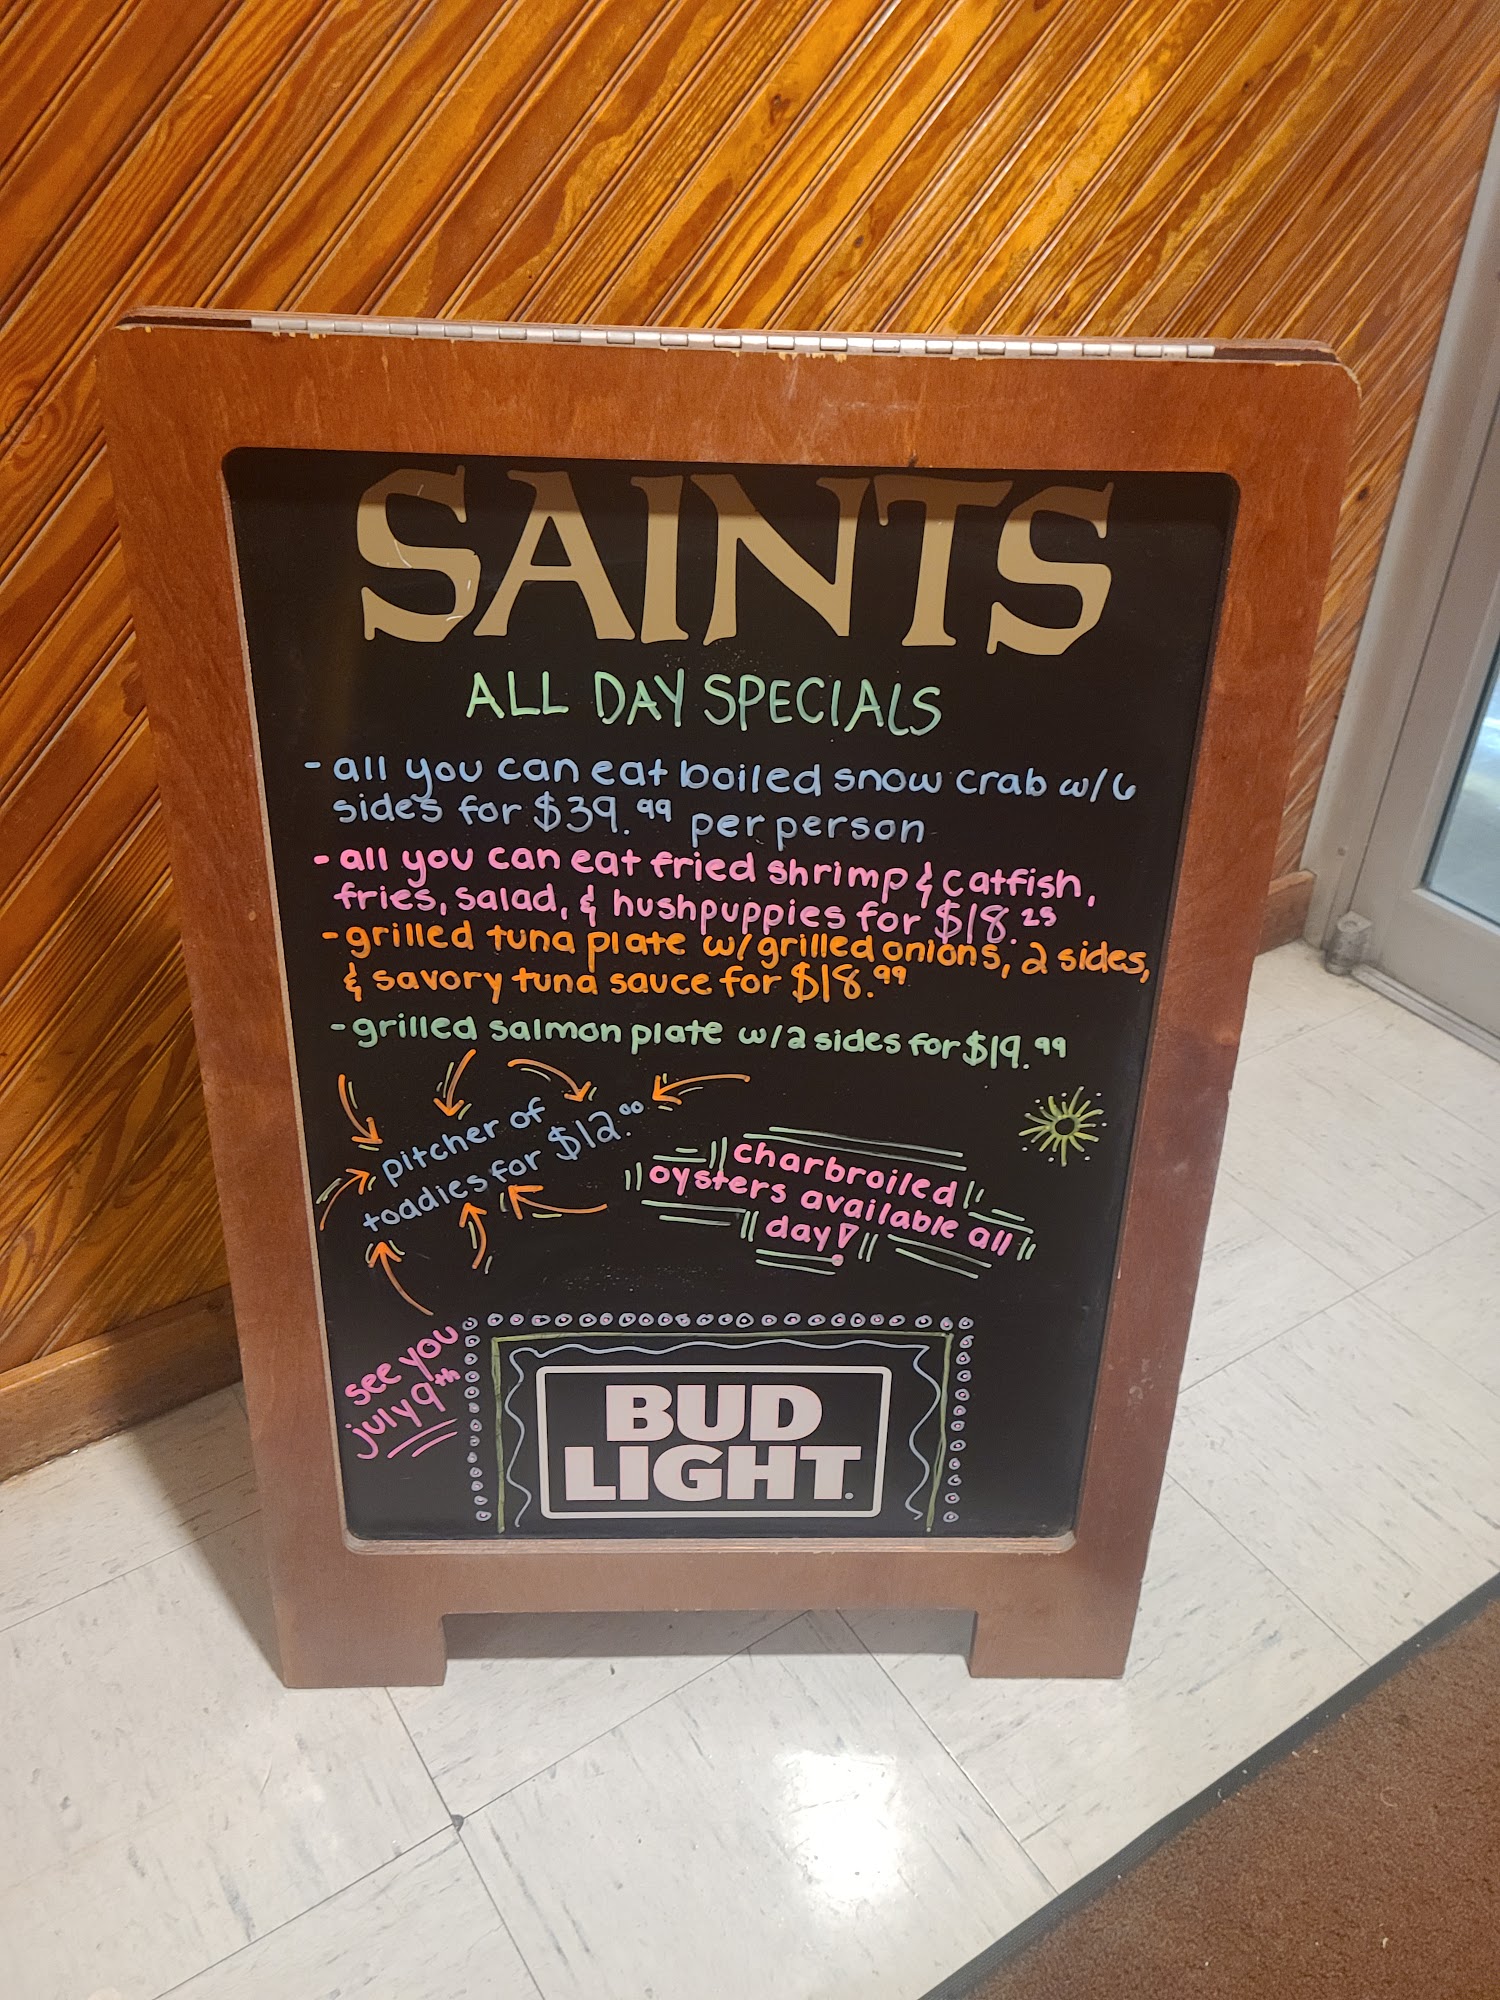 SAINTS
ALL DAY SPECIALS
- all you can eat boiled snow crab w/6
sides for $39.99 per person
- all you can eat fried shrimp & catfish,
fries, salad, & hushpuppies for $18.25
- grilled tuna plate w/grilled onions, 2 sides,
& savory tuna sauce for $18.99
- grilled salmon plate w/2 sides for $19.99
pitcher of
toddies for $12.00
charbroiled
oysters available all
day!
see you
july 9th
BUD
LIGHT.